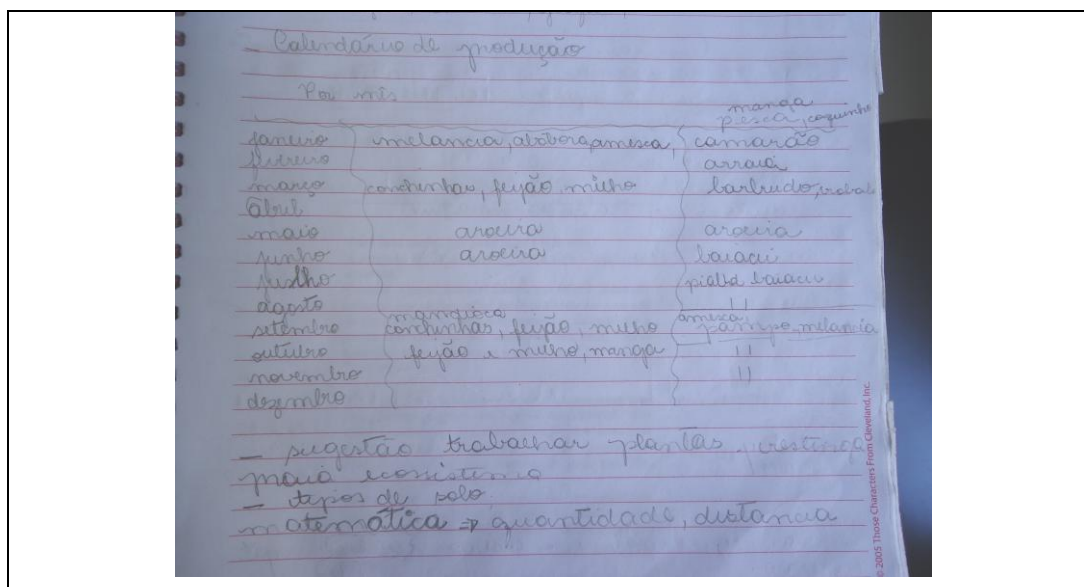 - Calendário de produção
Por mês
manga
pesca, coquinho
janeiro melancia, abóbora, amesca, camarão
fevereiro arraia
março conchinhas, feijão, milho barbudo, robalo
Abril
maio aroeira aroeira
junho aroeira baiacu
julho pialba baiacu
agosto 11
mandioca amesca
setembro conchinhas, feijão, milho pampo, melancia
outubro feijão e milho, manga 11
novembro 11
dezembro
- sugestão trabalhar plantas, restinga
ecossistema
- tipos de solo
matemática ⇒ quantidade, distancia
© 2005 Those Characters From Cleveland, Inc.